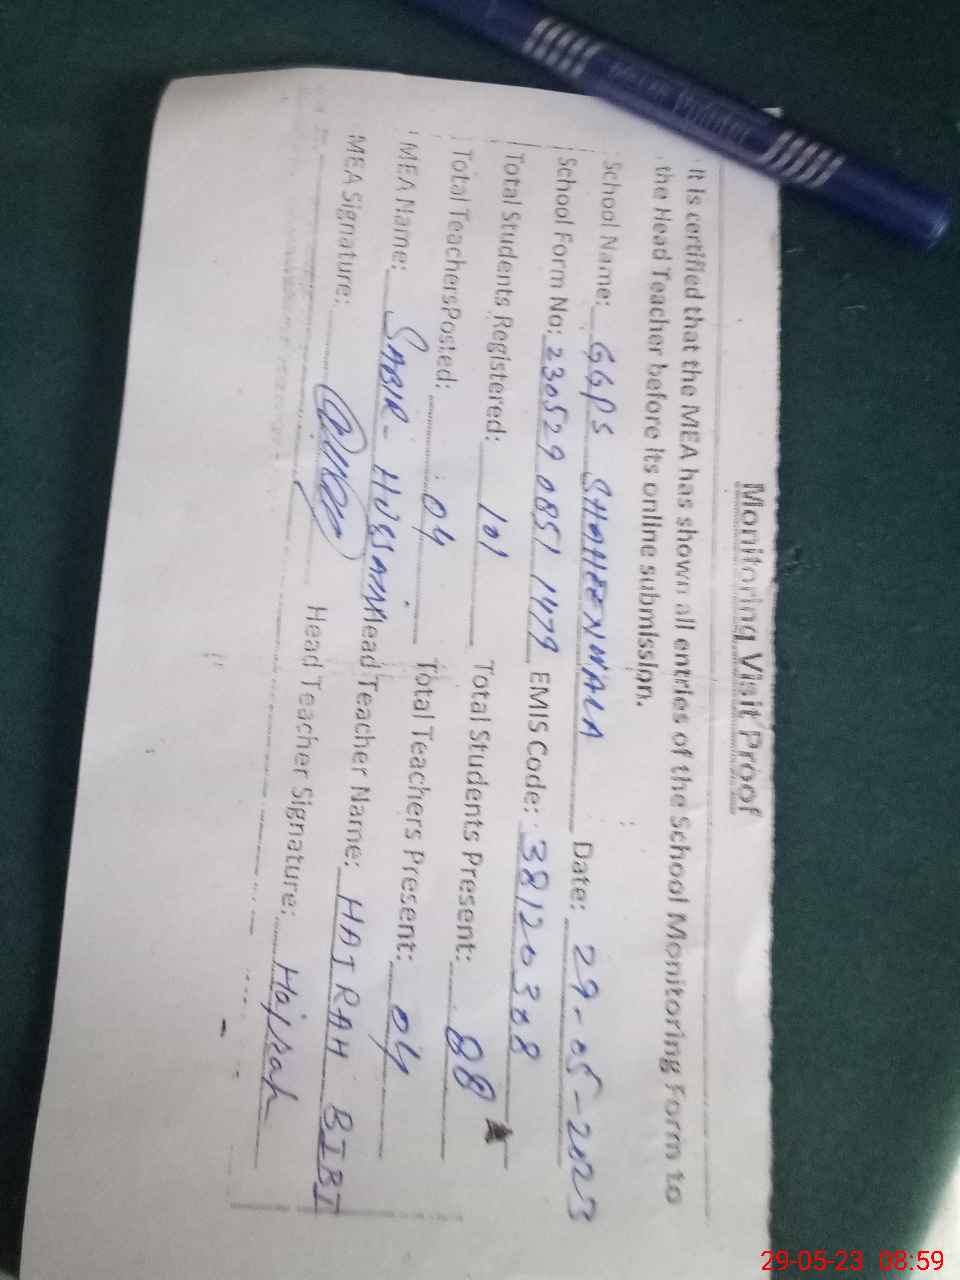 Monitoring Visit Proof
It is certified that the MEA has shown all entries of the School Monitoring Form to
the Head Teacher before its online submission.
School Name: GGPS SHAHEENWALA Date: 29-05-2023
School Form No: 230529 0851 1479 EMIS Code: 38120308
Total Students Registered: 101 Total Students Present: 88
Total TeachersPosted: 04 Total Teachers Present: 04
MEA Name: SABIR-HUSSAIN Head Teacher Name: HAJRAH BIBI
MEA Signature: Head Teacher Signature: Hajrah
29-05-23 08:59